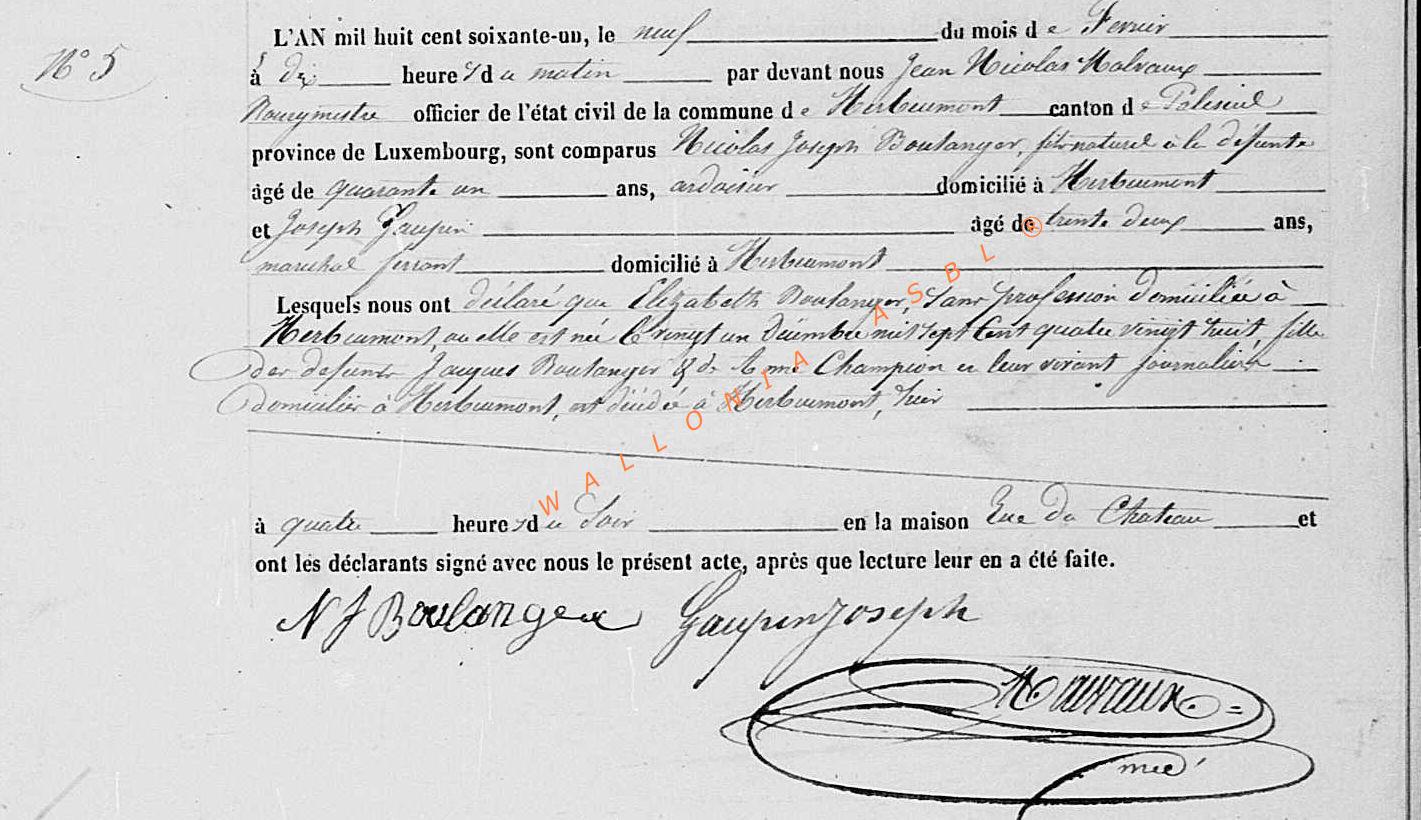 N° 5
L'AN mil huit cent soixante-un, le neuf du mois de Fevrier
à dix heures du matin par devant nous Jean Nicolas Malvaux
Bourgmestre officier de l'état civil de la commune de Herbeumont canton de Paliseul
province de Luxembourg, sont comparus Nicolas Joseph Boulanger, fils naturel à la défunte
âgé de quarante un ans, ardoisier domicilié à Herbeumont
et Joseph Gaupin âgé de trente deux ans,
marechal ferrant domicilié à Herbeumont
Lesquels nous ont déclaré que Elizabeth Boulanger, sans profession domiciliée à
Herbeumont, ou elle est née le vingt un décembre mil sept cent quatre vingt huit, fille
des defunts Jacques Boulanger & de Champion en leur vivant journaliers
domiciliés à Herbeumont, est décédée à Herbeumont, hier
à quatre heures du Soir en la maison Rue du Chateau et
ont les déclarants signé avec nous le présent acte, après que lecture leur en a été faite.
N J Boulanger Gaupin Joseph
Malvaux
WALLONIA ASBL ©